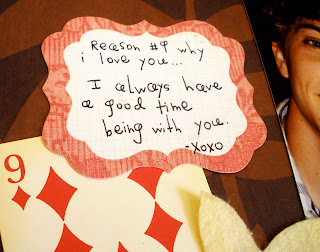 Reason #9 why
i love you...
I always have
a good time
being with you.
-xoxo
9